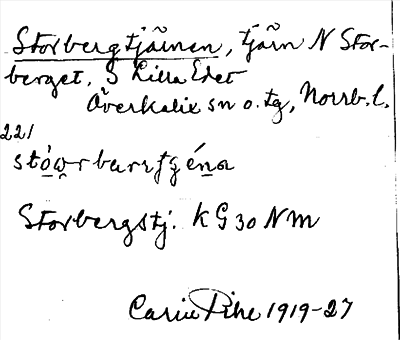 Storbergtjärnen, tjärn N Stor-
berget, S Lilla Edet
Överkalix sn o. tg, Norrb. l.
221
Storbergstj. k G 30 NM
Carin Pihl 1919-27